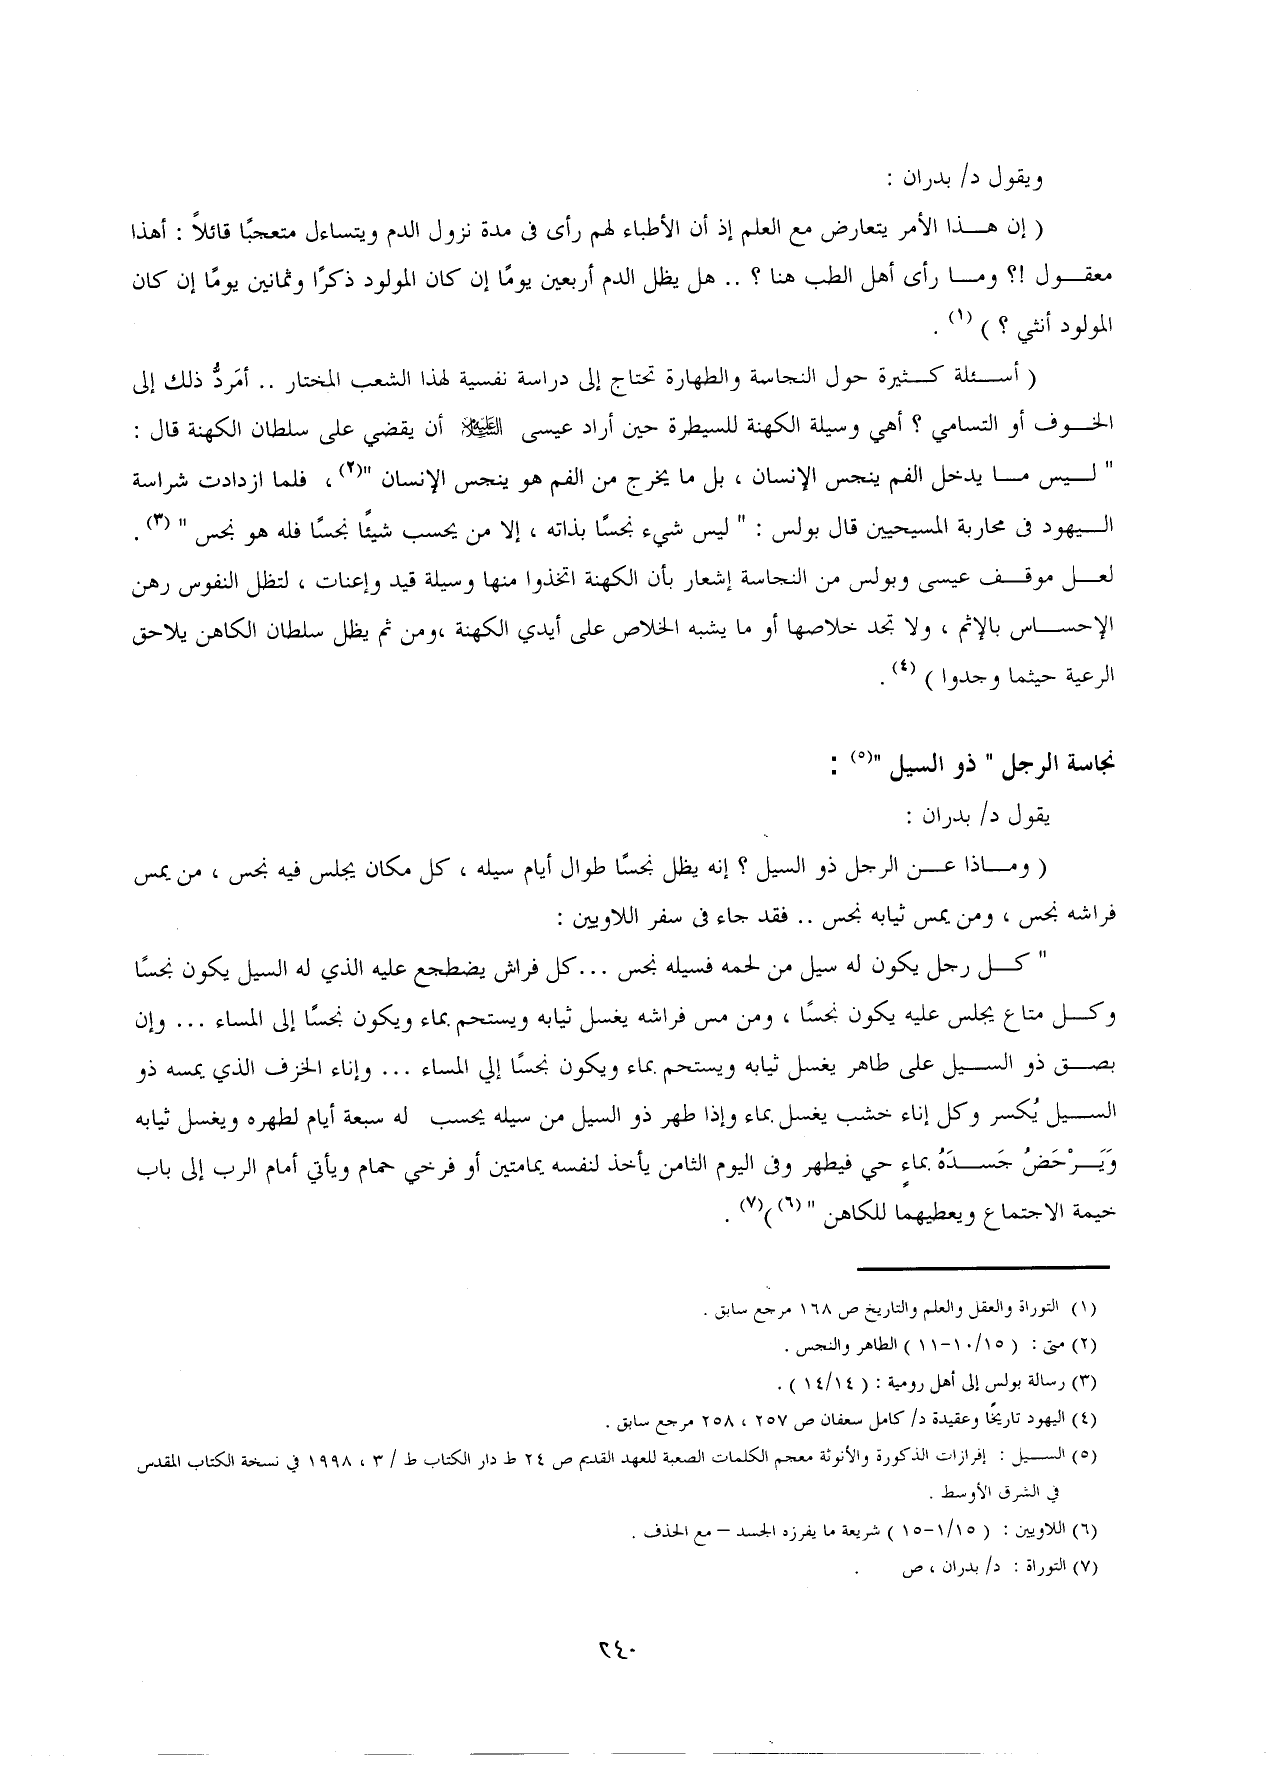 ويقول د/ بدران :
( إن هـــذا الأمر يتعارض مع العلم إذ أن الأطباء لهم رأى فى مدة نزول الدم ويتساءل متعجبًا قائلاً : أهذا
معقـــول !؟ ومـــا رأى أهل الطب هنا ؟ .. هل يظل الدم أربعين يومًا إن كان المولود ذكرًا وثمانين يومًا إن كان
المولود أنثي ؟ ) (١) .
( أســـئلة كـــثيرة حول النجاسة والطهارة تحتاج إلى دراسة نفسية لهذا الشعب المختار .. أمَردُّ ذلك إلى
الخـــوف أو التسامي ؟ أهي وسيلة الكهنة للسيطرة حين أراد عيسى عليه السلام أن يقضي على سلطان الكهنة قال :
" لـــيس مـــا يدخل الفم ينجس الإنسان ، بل ما يخرج من الفم هو ينجس الإنسان "(٢) ، فلما ازدادت شراسة
الـــيهود فى محاربة المسيحيين قال بولس : " ليس شيء نجسًا بذاته ، إلا من يحسب شيئًا نجسًا فله هو نجس " (٣) .
لعـــل موقـــف عيسى وبولس من النجاسة إشعار بأن الكهنة اتخذوا منها وسيلة قيد وإعنات ، لتظل النفوس رهن
الإحســـاس بالإثم ، ولا تجد خلاصها أو ما يشبه الخلاص على أيدي الكهنة ،ومن ثم يظل سلطان الكاهن يلاحق
الرعية حيثما وجدوا ) (٤) .
نجاسة الرجل " ذو السيل "(٥) :
يقول د/ بدران :
( ومـــاذا عـــن الرجل ذو السيل ؟ إنه يظل نجسًا طوال أيام سيله ، كل مكان يجلس فيه نجس ، من يمس
فراشه نجس ، ومن يمس ثيابه نجس .. فقد جاء فى سفر اللاويين :
" كـــل رجل يكون له سيل من لحمه فسيله نجس ...كل فراش يضطجع عليه الذي له السيل يكون نجسًا
وكـــل متاع يجلس عليه يكون نجسًا ، ومن مس فراشه يغسل ثيابه ويستحم بماء ويكون نجسًا إلى المساء ... وإن
بصـــق ذو الســـيل على طاهر يغسل ثيابه ويستحم بماء ويكون نجسًا إلي المساء ... وإناء الخزف الذي يمسه ذو
الســـيل يُكسر وكل إناء خشب يغسل بماء وإذا طهر ذو السيل من سيله يحسب له سبعة أيام لطهره ويغسل ثيابه
وَيَـــرْحَضُ جَســـدَهُ بماءٍ حي فيطهر وفى اليوم الثامن يأخذ لنفسه يمامتين أو فرخي حمام ويأتي أمام الرب إلى باب
خيمة الاجتماع ويعطيهما للكاهن " (٦) )(٧) .
(١) التوراة والعقل والعلم والتاريخ ص ١٦٨ مرجع سابق .
(٢) متى : ( ١٥/١٠-١١ ) الطاهر والنجس .
(٣) رسالة بولس إلى أهل رومية : ( ١٤/١٤ ) .
(٤) اليهود تاريخًا وعقيدة د/ كامل سعفان ص ٢٥٧ ، ٢٥٨ مرجع سابق .
(٥) الســـيل : إفرازات الذكورة والأنوثة معجم الكلمات الصعبة للعهد القديم ص ٢٤ ط دار الكتاب ط / ٣ ، ١٩٩٨ في نسخة الكتاب المقدس
في الشرق الأوسط .
(٦) اللاويين : ( ١٥/١-١٥ ) شريعة ما يفرزه الجسد – مع الحذف .
(٧) التوراة : د/ بدران ، ص .
٢٤٠